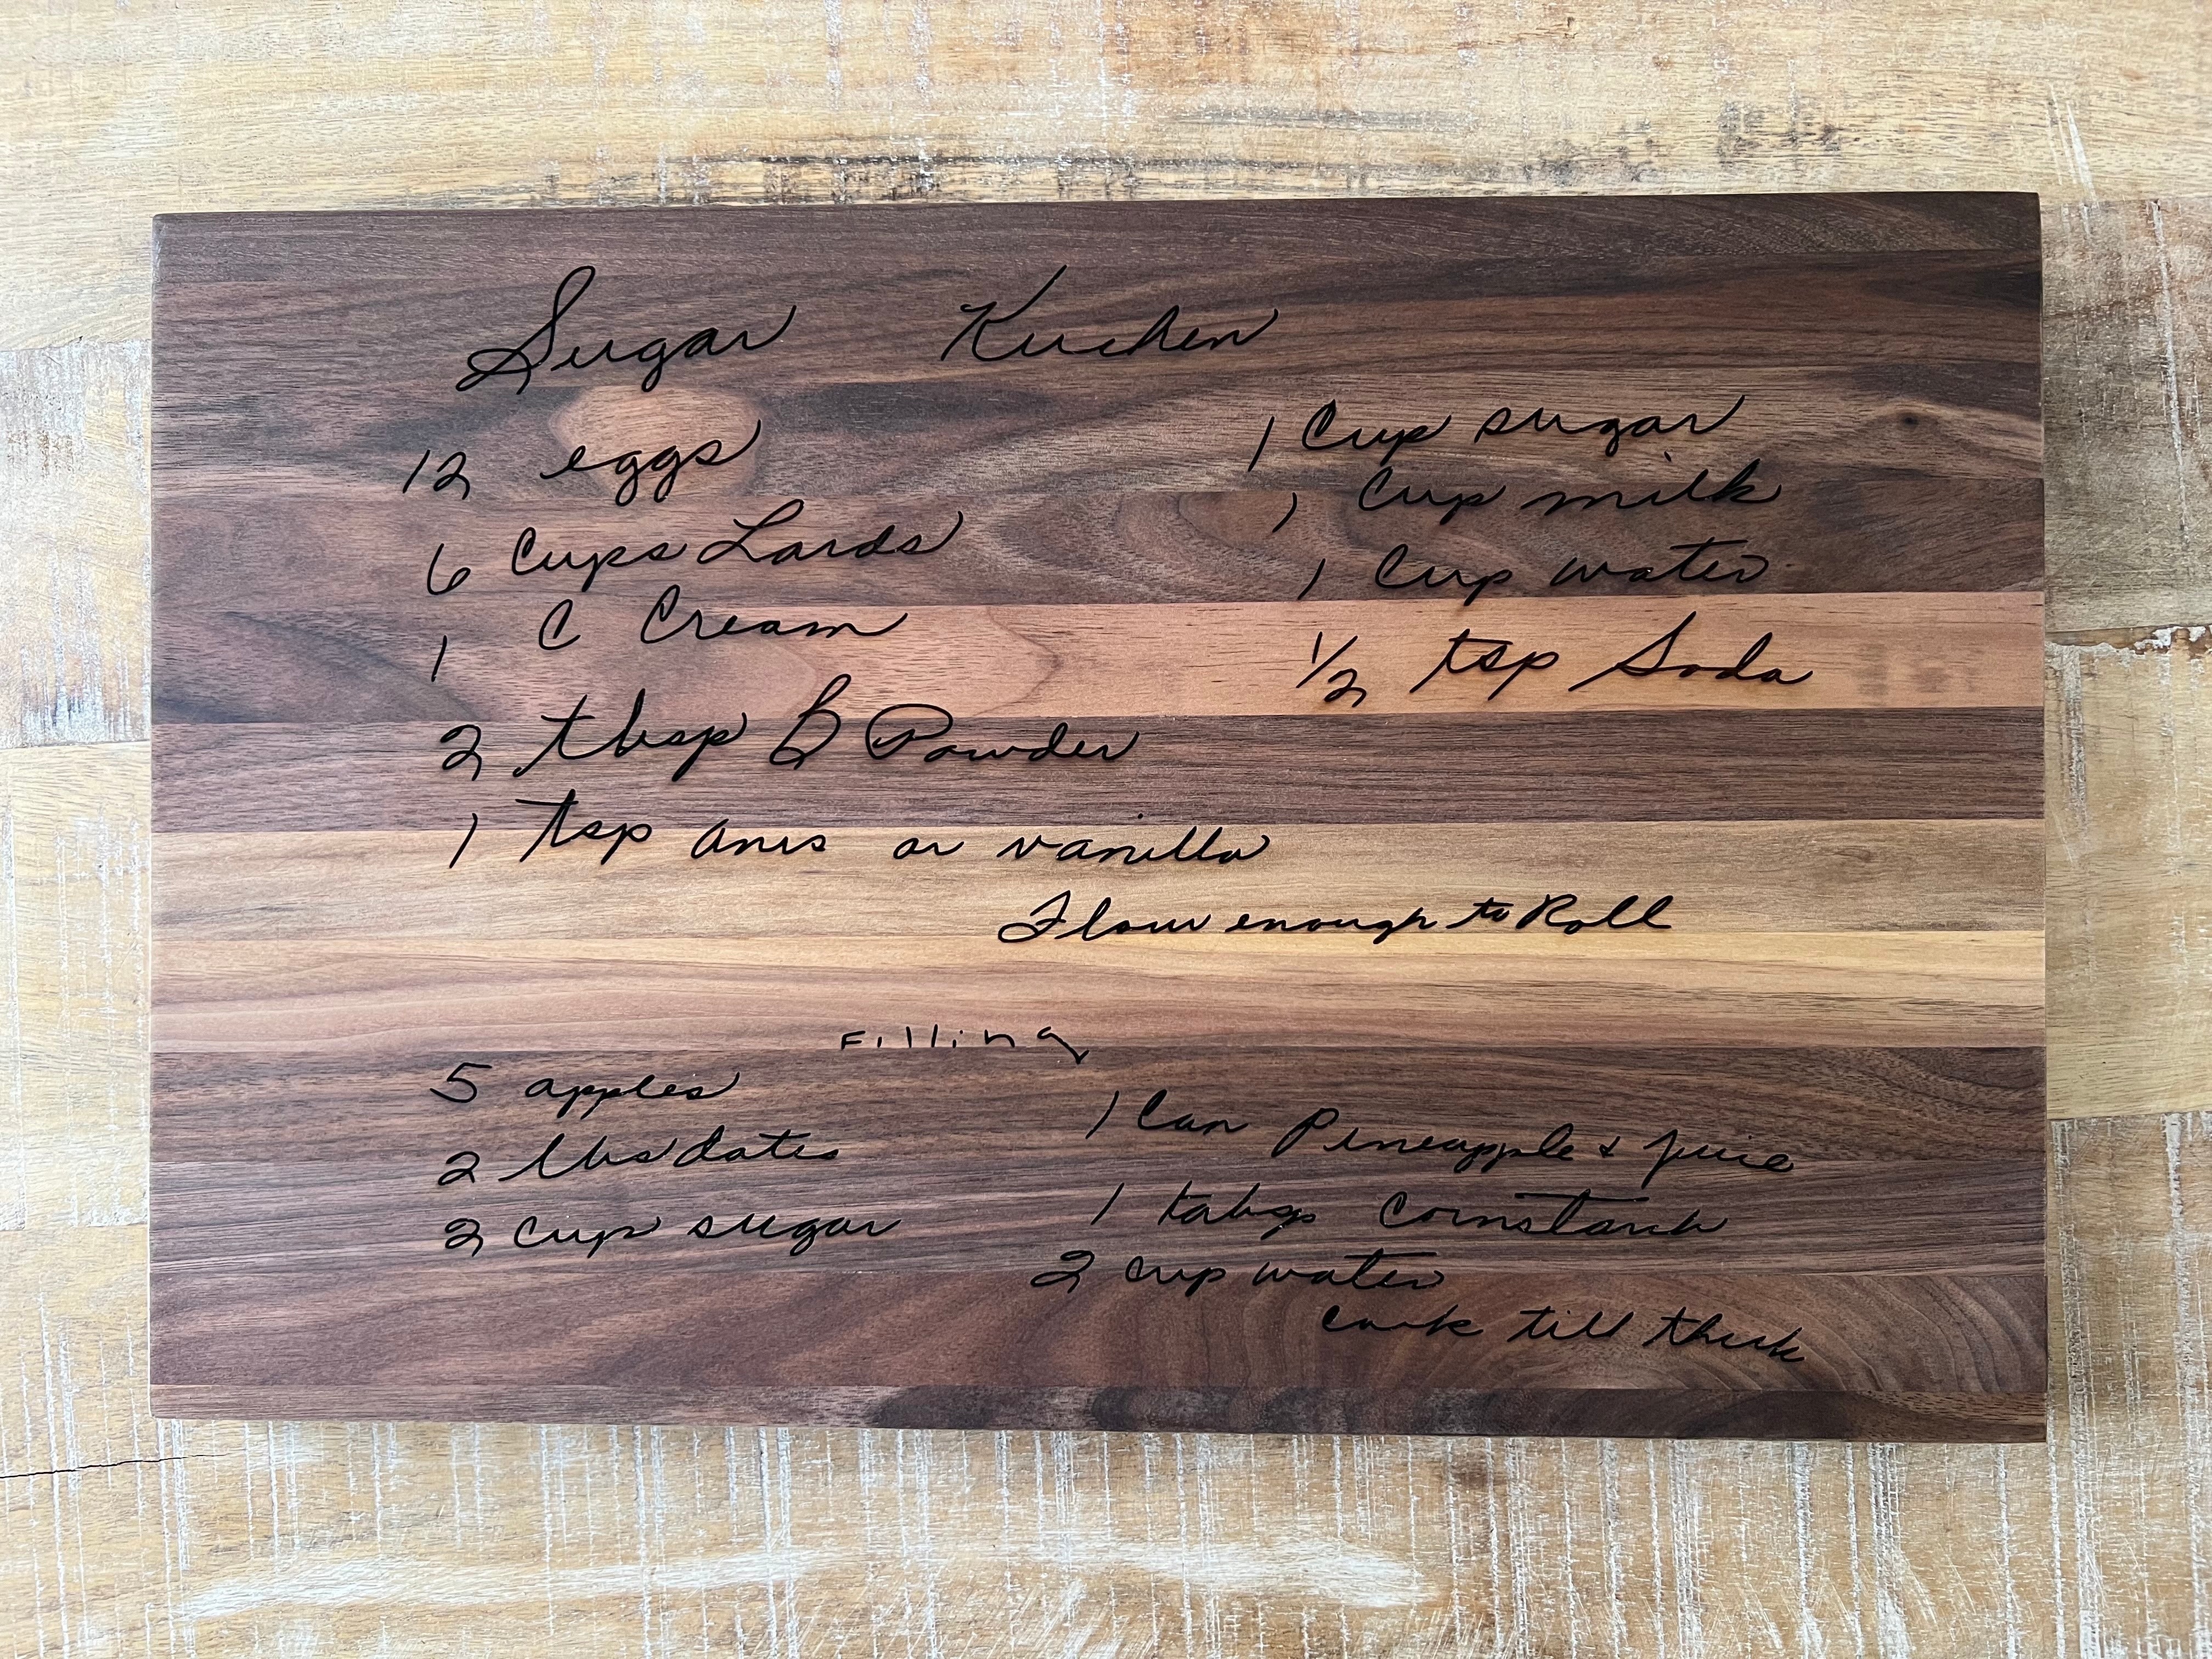 Sugar Kuchen
12 eggs
6 Cups Lards
1 C Cream
2 tbsp B Powder
1 tsp anis or vanilla
1 Cup sugar
1 Cup milk
1 Cup water
1/2 tsp Soda
Flour enough to Roll
Filling
5 apples
2 lbs dates
2 cup sugar
1 Can Pineapple & juice
1 tabsp Cornstarch
2 cup water
cook till thick